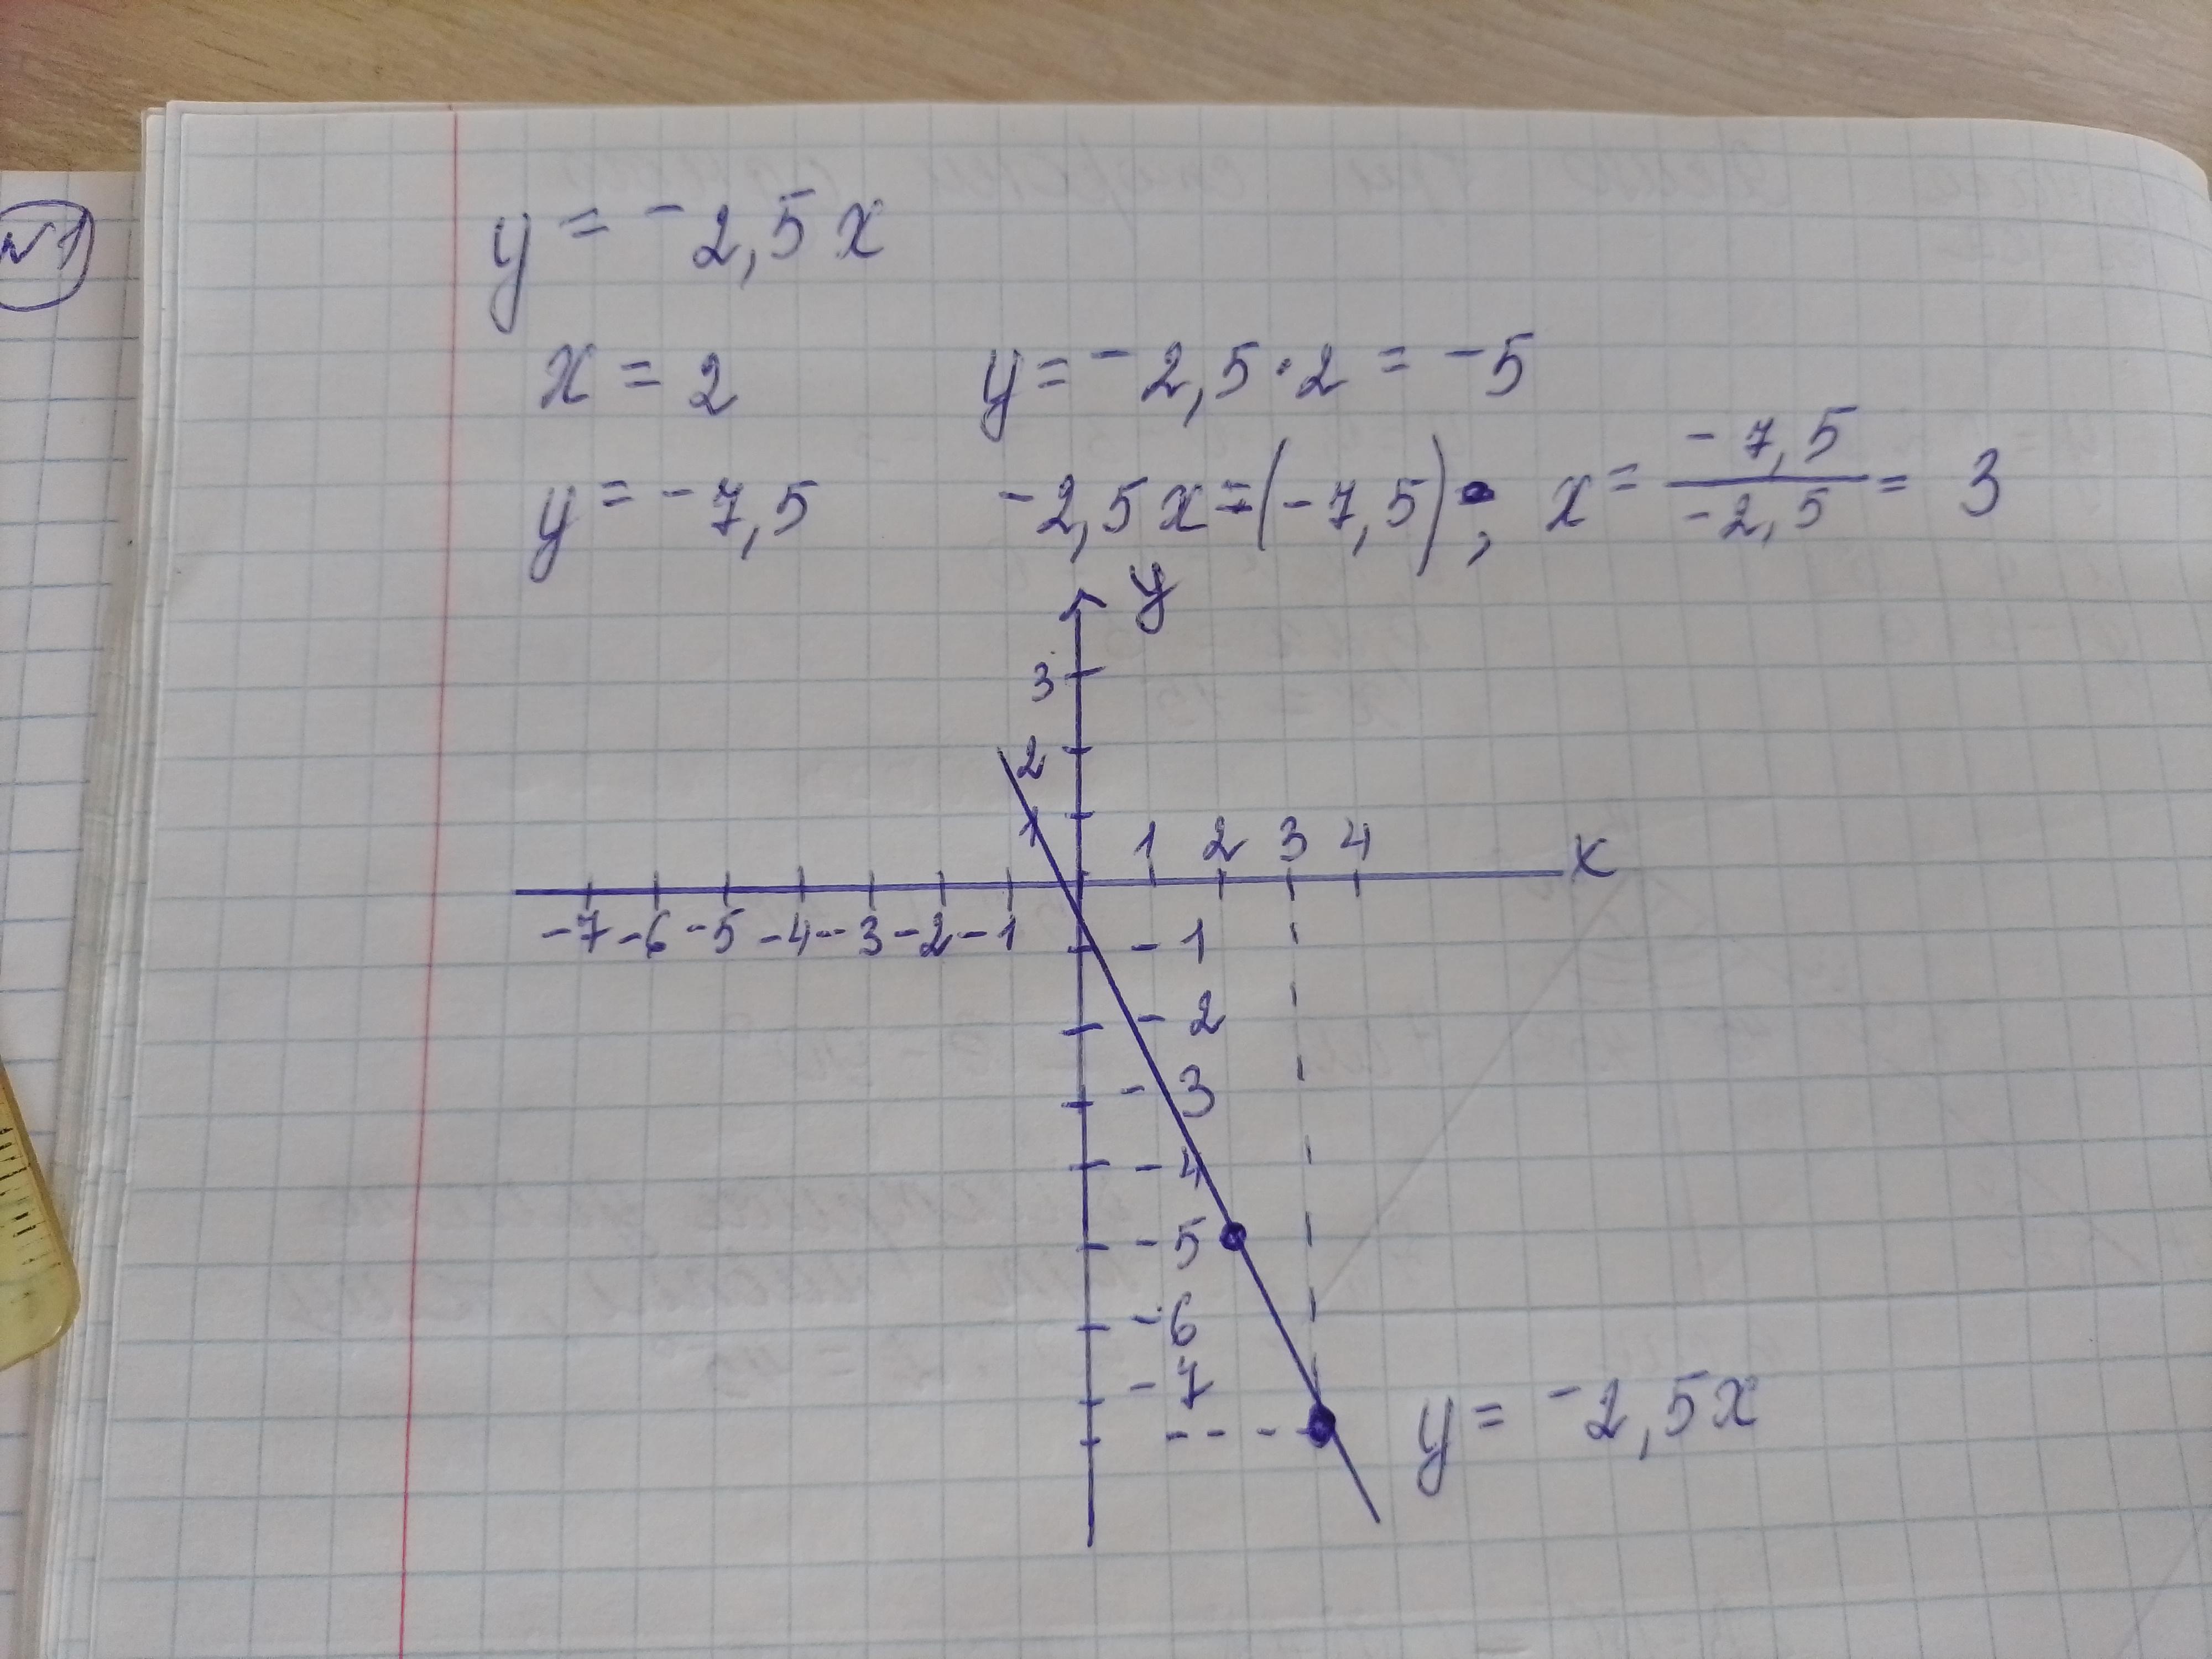 №1
y = -2,5x
x = 2 y = -2,5·2 = -5
y = -7,5 -2,5x=(-7,5); x = -7,5/-2,5 = 3
y
3
2
1
1 2 3 4 x
-7 -6 -5 -4 -3 -2 -1
-1
-2
-3
-4
-5
-6
-7
y = -2,5x